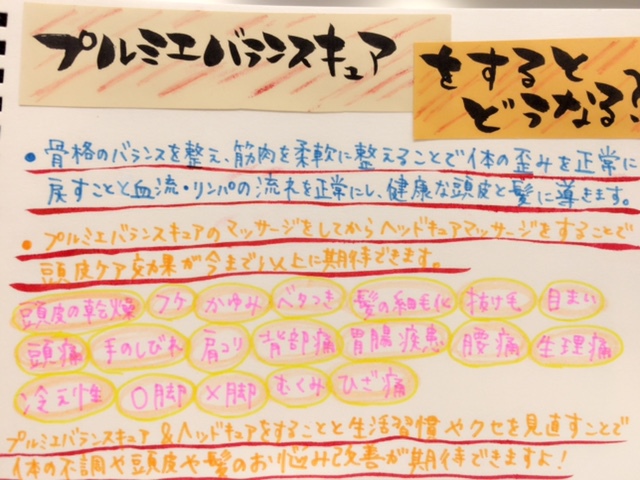 プルミエバランスキュア
をすると
どうなる?
・骨格のバランスを整え、筋肉を柔軟に整えることで体の歪みを正常に
戻すことと血流・リンパの流れを正常にし、健康な頭皮と髪に導きます。
・プルミエバランスキュアのマッサージをしてからヘッドキュアマッサージをすることで
頭皮ケア効果が今まで以上に期待できます。
頭皮の乾燥 フケ かゆみ ベタつき 髪の細毛化 抜け毛 目まい
頭痛 手のしびれ 肩コリ 背部痛 胃腸疾患 腰痛 生理痛
冷え性 O脚 X脚 むくみ ひざ痛
プルミエバランスキュア&ヘッドキュアをすることと生活習慣やクセを見直すことで
体の不調や頭皮や髪のお悩み改善が期待できますよ!